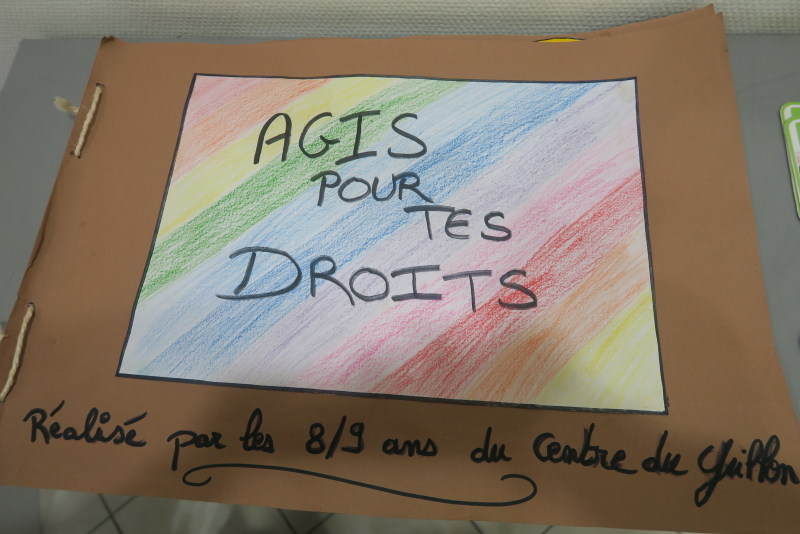 AGIS
POUR
TES
DROITS
Réalisé par les 8/9 ans du Centre du